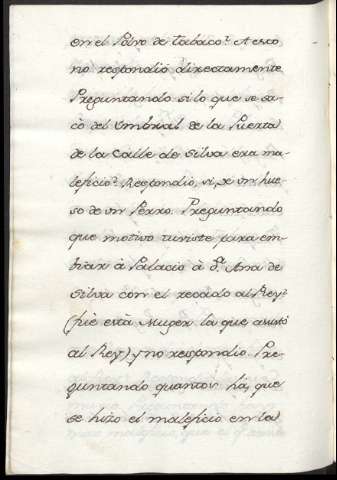 en el Polvo de tabaco? A esto
no respondiò directamente
Preguntando si lo que se sa-
cò del Umbral de la Puerta
de la Calle de Silva era ma-
leficio? Respondio, si, de un hue-
so de un Perro. Preguntando
que motivo tuviste para em-
biar à Palacio à D.ª Ana de
Silva con el recado al Rey?
(fuè esta Muger la que asustó
al Rey) y no respondio. Pre-
guntando quantos ha, que
se hizo el maleficio en la